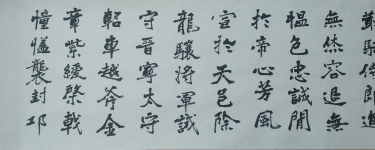 騎侍郎進
無烋容退無
愠色忠誠閒
於帝心芳風
宣於天邑除
龍驤将軍試
守晉寧太守
軺車越斧金
章紫綬棨戟
幢幰襲封邛